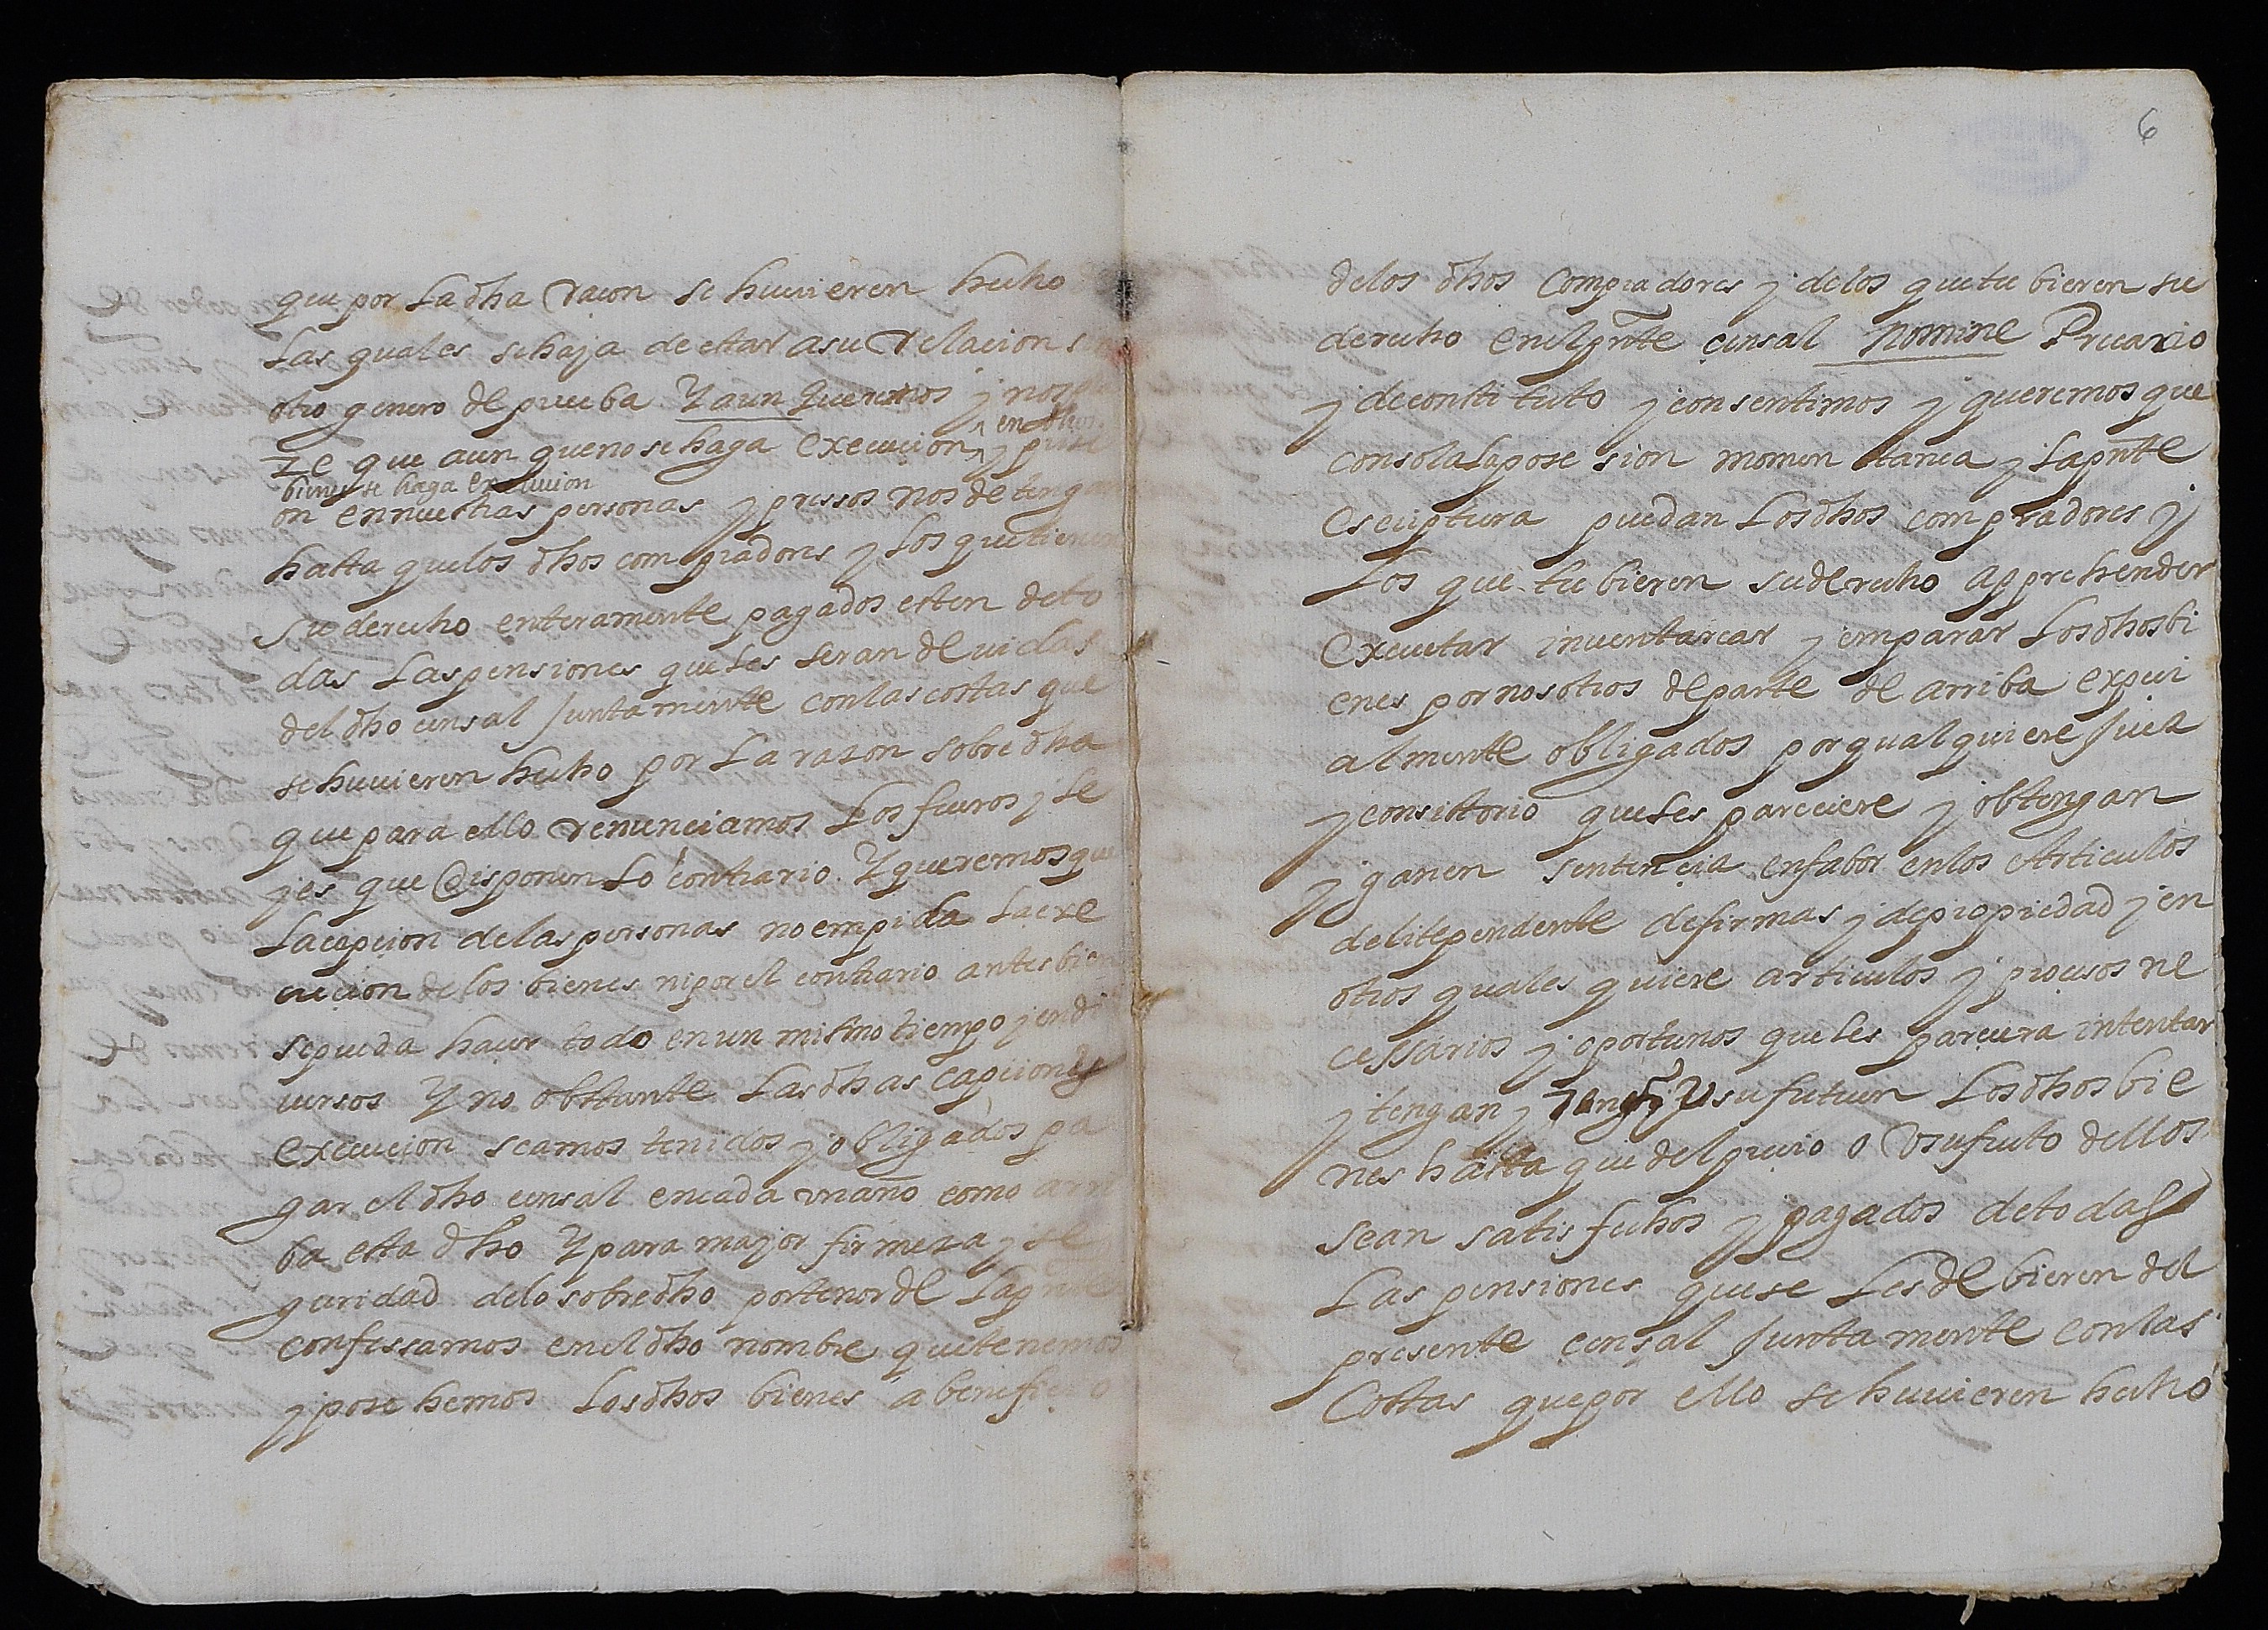 que por La dha racon se huvieren hecho
Las quales se haja de estar a su relacion
otro genero de prueba Y aun queremos y nos
ze que aun que no se haga execucion en dhos
bienes se haga execucion
on en nuestras personas y pressos nos detengan
hasta que los dhos compradores y Los que tienen
su derecho enteramente pagados esten de to
das Las pensiones que Les seran devidas
del dho censal Juntamente con las costas que
se huvieren hecho por La razon sobre dha
que para ello renunciamos Los fueros y le
jes que disponen Lo contrario Y queremos que
La cepcion de las personas no empida La exe
cucion de los bienes ni por el contrario antes bien
se pueda hacer todo en un mismo tiempo y en di
versos Y no obstante Las dhas capciones
execucion seamos tenidos y obligados pa
gar el dho censal en cada un año como arri
ba esta dho Y para major firmeza y se
guridad de lo sobredho por tenor de La pnte
confessamos en el dho nombre que tenemos
y posehemos Los dhos bienes a beneficio
6
de los dhos Compradores y de los que tubieren su
derecho en el pnte censal Nomine Precario
y de constituto y consentimos y queremos que
con sola La posesion momentanea y La pnte
escriptura puedan Los dhos compradores y
Los que tubieren su derecho apprehender
executar inventariar y emparar Los dhos bi
enes por nosotros de parte de arriba expeci
almente obligados por qual quiere Juez
y consistorio que Les pareciere y obtengan
y ganen sentencia en fabor en los Articulos
de litependente de firmas y de propiedad y en
otros quales quiere articulos y procesos ne
cessarios y oportunos que Les parecera intentar
y tengan y usufrutuen Los dhos bie
nes hasta que del precio o Usufruto dellos
sean satisfechos y pagados de todas
Las pensiones que se Les debieren del
presente censal Juntamente con las
Costas que por ello se huvieren hecho